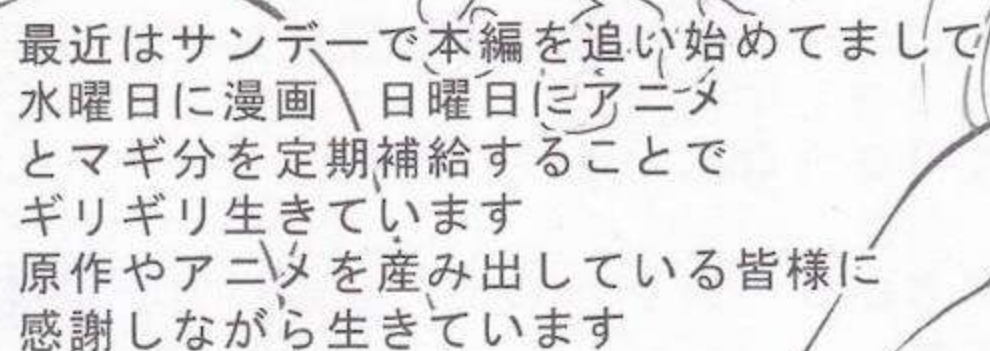 最近はサンデーで本編を追い始めてまして
水曜日に漫画　日曜日にアニメ
とマギ分を定期補給することで
ギリギリ生きています
原作やアニメを産み出している皆様に
感謝しながら生きています